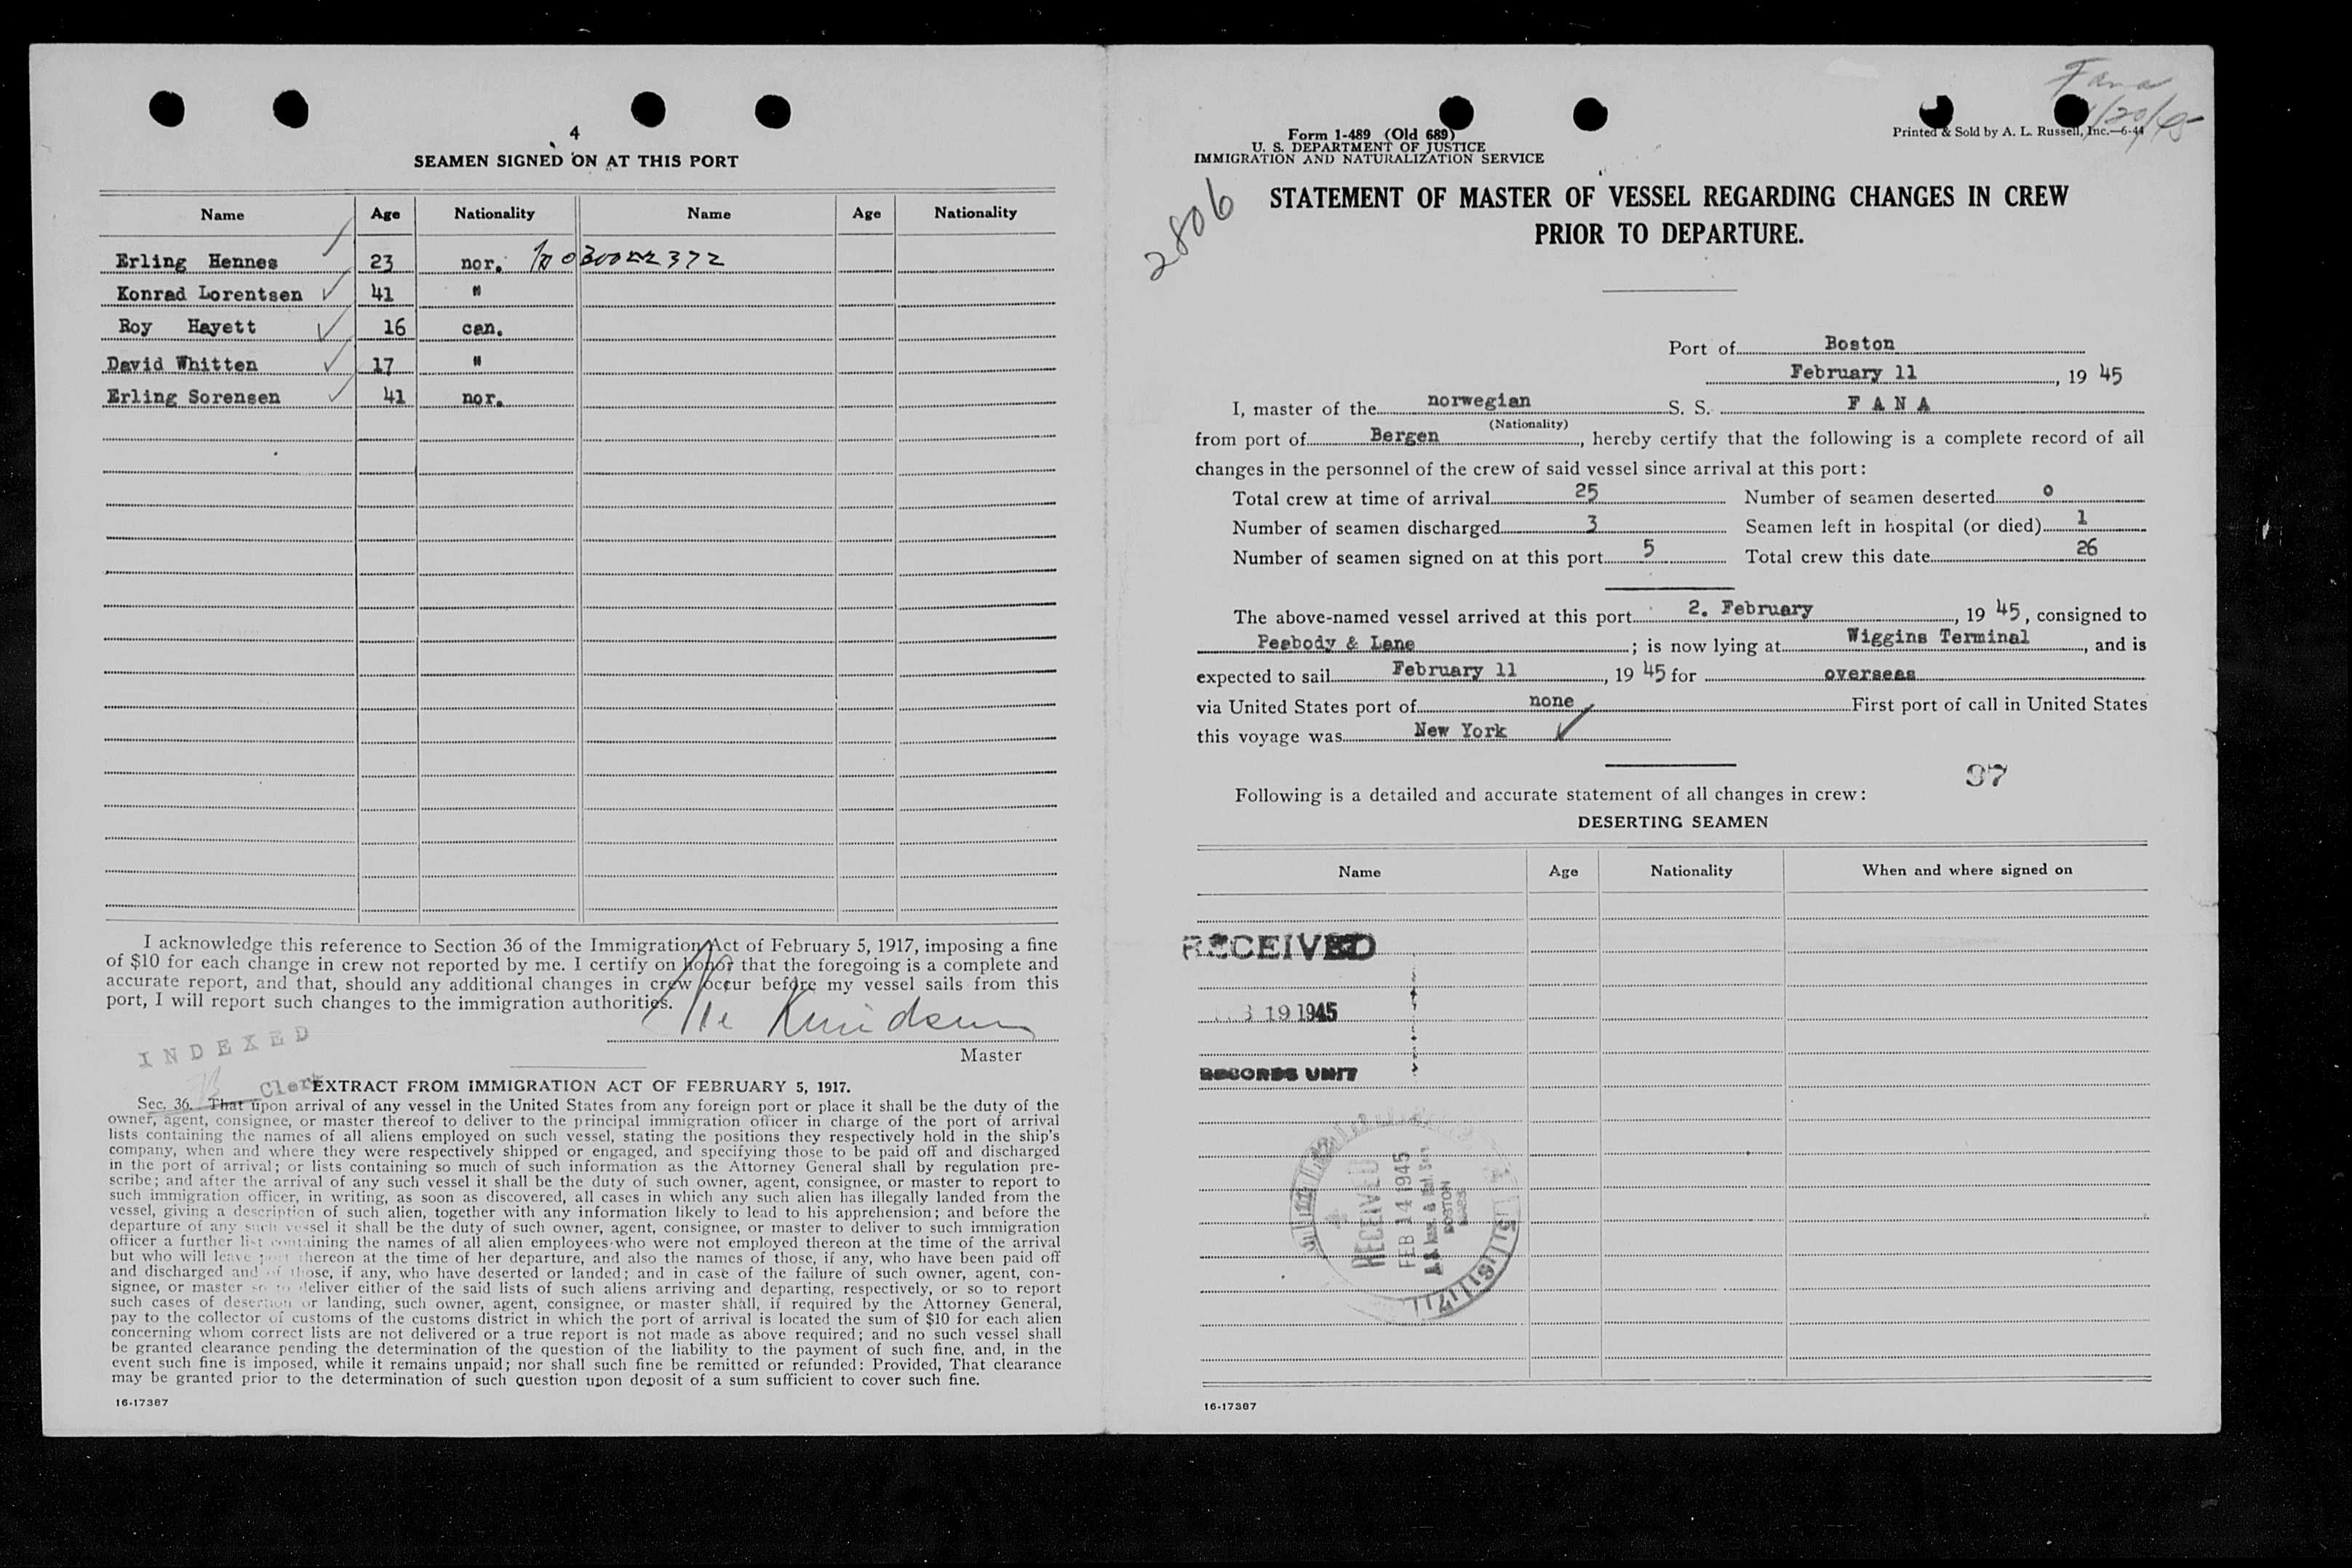 4
SEAMEN SIGNED ON AT THIS PORT
Name Age Nationality Name Age Nationality
Erling Hennes 23 nor.
Konrad Lorentsen 41 "
Roy Hayett 16 can.
David Whitten 17 "
Erling Sorensen 41 nor.
I acknowledge this reference to Section 36 of the Immigration Act of February 5, 1917, imposing a fine
of $10 for each change in crew not reported by me. I certify on honor that the foregoing is a complete and
accurate report, and that, should any additional changes in crew occur before my vessel sails from this
port, I will report such changes to the immigration authorities.
Knudsen
Master
INDEXED
Clerk
EXTRACT FROM IMMIGRATION ACT OF FEBRUARY 5, 1917.
Sec. 36. That upon arrival of any vessel in the United States from any foreign port or place it shall be the duty of the
owner, agent, consignee, or master thereof to deliver to the principal immigration officer in charge of the port of arrival
lists containing the names of all aliens employed on such vessel, stating the positions they respectively hold in the ship's
company, when and where they were respectively shipped or engaged, and specifying those to be paid off and discharged
in the port of arrival; or lists containing so much of such information as the Attorney General shall by regulation pre-
scribe; and after the arrival of any such vessel it shall be the duty of such owner, agent, consignee, or master to report to
such immigration officer, in writing, as soon as discovered, all cases in which any such alien has illegally landed from the
vessel, giving a description of such alien, together with any information likely to lead to his apprehension; and before the
departure of any such vessel it shall be the duty of such owner, agent, consignee, or master to deliver to such immigration
officer a further list containing the names of all alien employees who were not employed thereon at the time of the arrival
but who will leave port thereon at the time of her departure, and also the names of those, if any, who have been paid off
and discharged and of those, if any, who have deserted or landed; and in case of the failure of such owner, agent, con-
signee, or master so to deliver either of the said lists of such aliens arriving and departing, respectively, or so to report
such cases of desertion or landing, such owner, agent, consignee, or master shall, if required by the Attorney General,
pay to the collector of customs of the customs district in which the port of arrival is located the sum of $10 for each alien
concerning whom correct lists are not delivered or a true report is not made as above required; and no such vessel shall
be granted clearance pending the determination of the question of the liability to the payment of such fine, and, in the
event such fine is imposed, while it remains unpaid; nor shall such fine be remitted or refunded: Provided, That clearance
may be granted prior to the determination of such question upon deposit of a sum sufficient to cover such fine.
16-17387
Fana
Form 1-489 (Old 689)
U. S. DEPARTMENT OF JUSTICE
IMMIGRATION AND NATURALIZATION SERVICE
Printed & Sold by A. L. Russell, Inc.—6-44
2806
STATEMENT OF MASTER OF VESSEL REGARDING CHANGES IN CREW
PRIOR TO DEPARTURE.
Port of Boston
February 11, 19 45
I, master of the norwegian S. S. FANA
(Nationality)
from port of Bergen, hereby certify that the following is a complete record of all
changes in the personnel of the crew of said vessel since arrival at this port:
Total crew at time of arrival 25 Number of seamen deserted 0
Number of seamen discharged 3 Seamen left in hospital (or died) 1
Number of seamen signed on at this port 5 Total crew this date 26
The above-named vessel arrived at this port 2. February, 19 45, consigned to
Peabody & Lane; is now lying at Wiggins Terminal, and is
expected to sail February 11, 19 45 for overseas
via United States port of none First port of call in United States
this voyage was New York
97
Following is a detailed and accurate statement of all changes in crew:
DESERTING SEAMEN
Name Age Nationality When and where signed on
RECEIVED
19 1945
RECORDS UNIT
RECEIVED
FEB 14 1945
BOSTON
MASS
16-17387